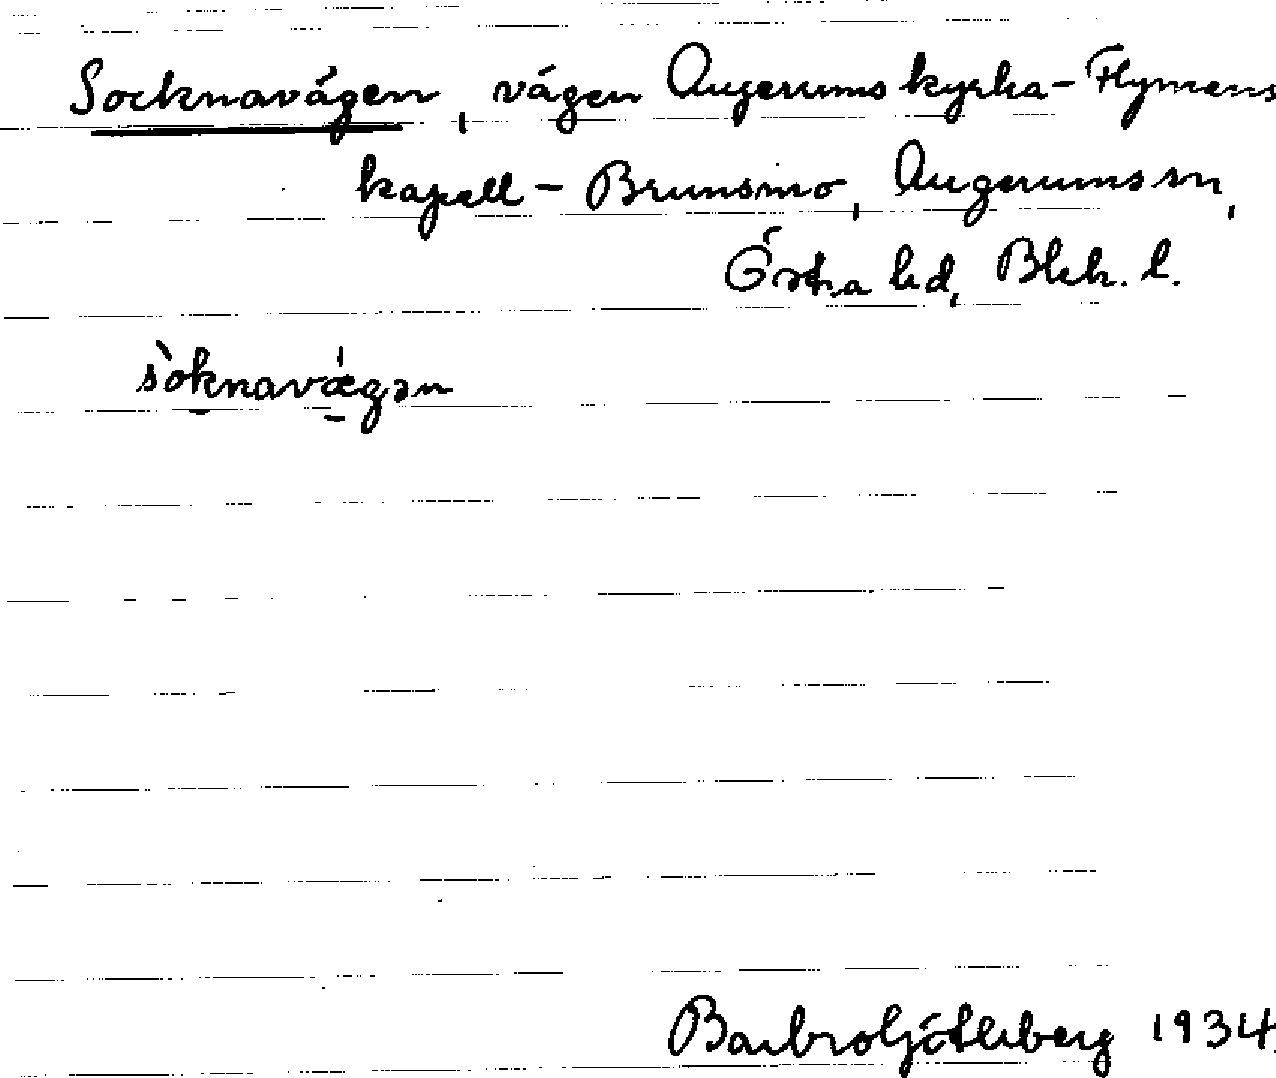 Socknavägen, vägen Augerums kyrka – Flymens
kapell – Brunsmo, Augerums sn,
Östra hd, Blek. l.
sòknavǽgən
Barbro Götherberg 1934.